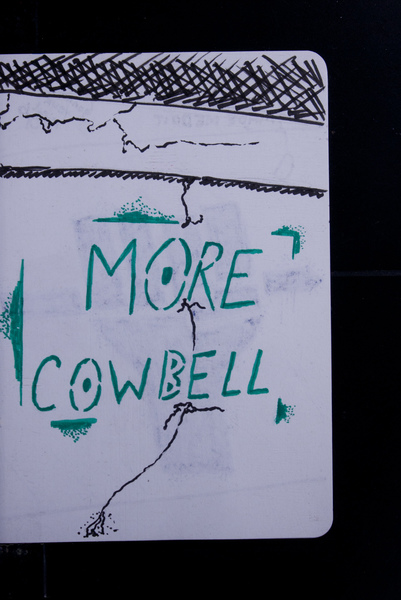 MORE
COWBELL